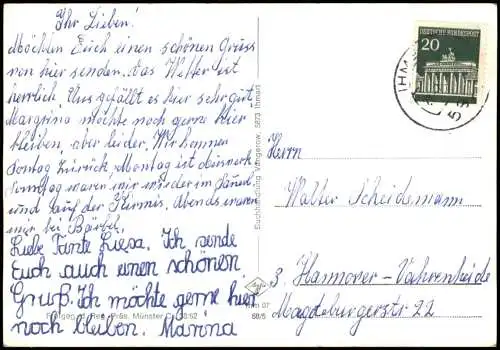 Ihr Lieben!
Möchten Euch einen schönen Gruss
von hier senden. Das Wetter ist
herrlich. Uns gefällt es hier sehr gut,
möchte noch gerne hier
bleiben, aber leider. Wir kommen
Sontag zurück, Montag ist
Sonntag waren wir wieder im
und auf der Kirmis. Abends waren
wir bei Bärbel.
Liebe Tante Luisa. Ich sende
Euch auch einen schönen
Gruß. Ich möchte gerne hier
noch bleiben. Marina
Reg. Präs. Münster
07
68/5
Buchhandlung Vangerow, 5873 Ihmert
DEUTSCHE BUNDESPOST
20
IHM
Herrn
Walter Scheidemann
3. Hannover-Vahrenheide
Magdeburgerstr. 22